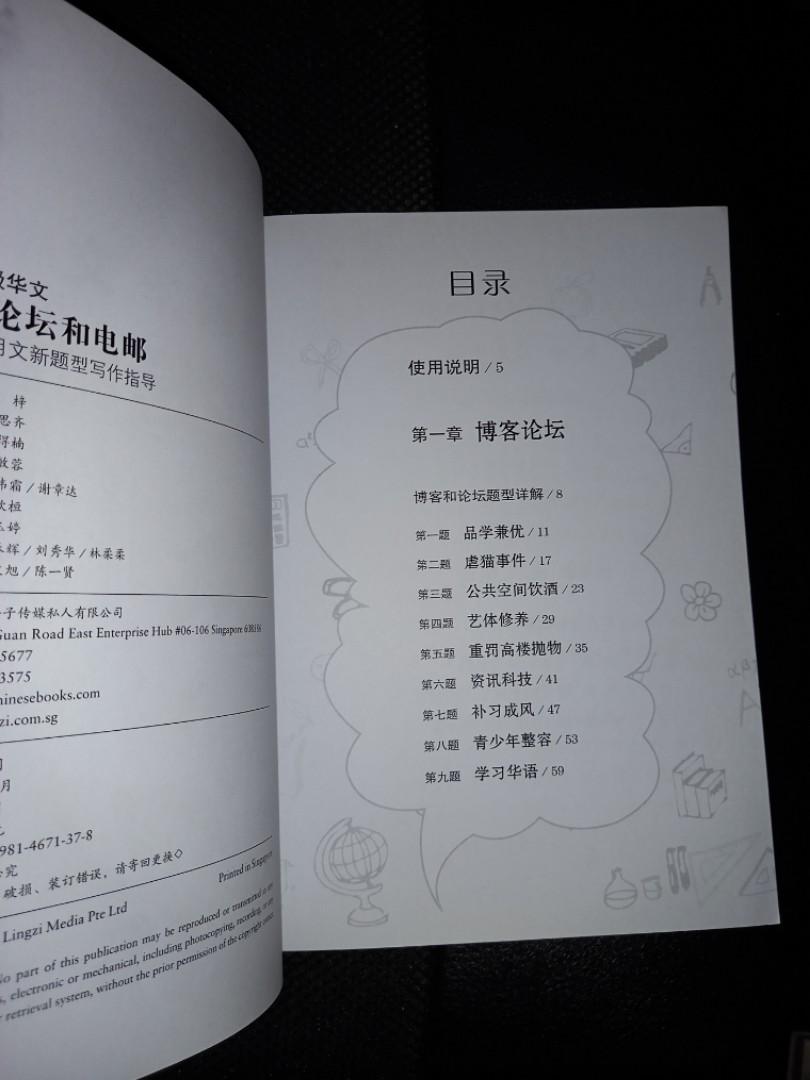 级华文
论坛和电邮
用文新题型写作指导
梓
思齐
得楠
敏蓉
伟霜 / 谢章达
欣桓
玉婷
辉 / 刘秀华 / 林柔柔
旭 / 陈一贤
子传媒私人有限公司
Guan Road East Enterprise Hub #06-106 Singapore 608586
5677
3575
hinesebooks.com
zi.com.sg
月
981-4671-37-8
究
破损、装订错误，请寄回更换◇
Printed in Singapore
Lingzi Media Pte Ltd
No part of this publication may be reproduced or transmitted in any
, electronic or mechanical, including photocopying, recording, or any
retrieval system, without the prior permission of the copyright owner.
目录
使用说明 / 5
第一章 博客论坛
博客和论坛题型详解 / 8
第一题 品学兼优 / 11
第二题 虐猫事件 / 17
第三题 公共空间饮酒 / 23
第四题 艺体修养 / 29
第五题 重罚高楼抛物 / 35
第六题 资讯科技 / 41
第七题 补习成风 / 47
第八题 青少年整容 / 53
第九题 学习华语 / 59